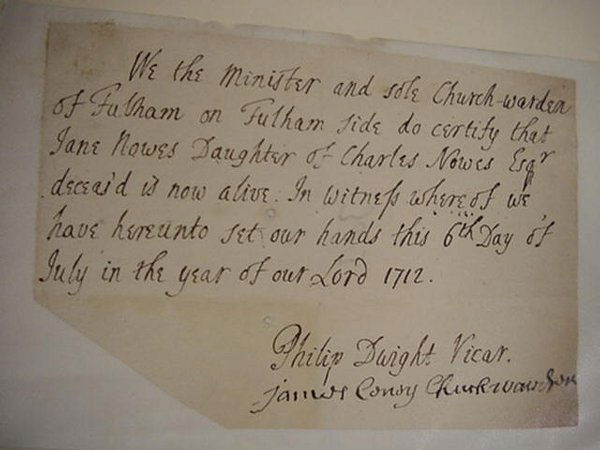 We the Minister and sole Church-warden
of Fulham on Fulham side do certify that
Jane Nowes Daughter of Charles Nowes Esqr
deceas'd is now alive. In witneſs whereof we
have hereunto set our hands this 6th Day of
July in the year of our Lord 1712.
Philip Dwight Vicar.
James Conoy Churchwarden